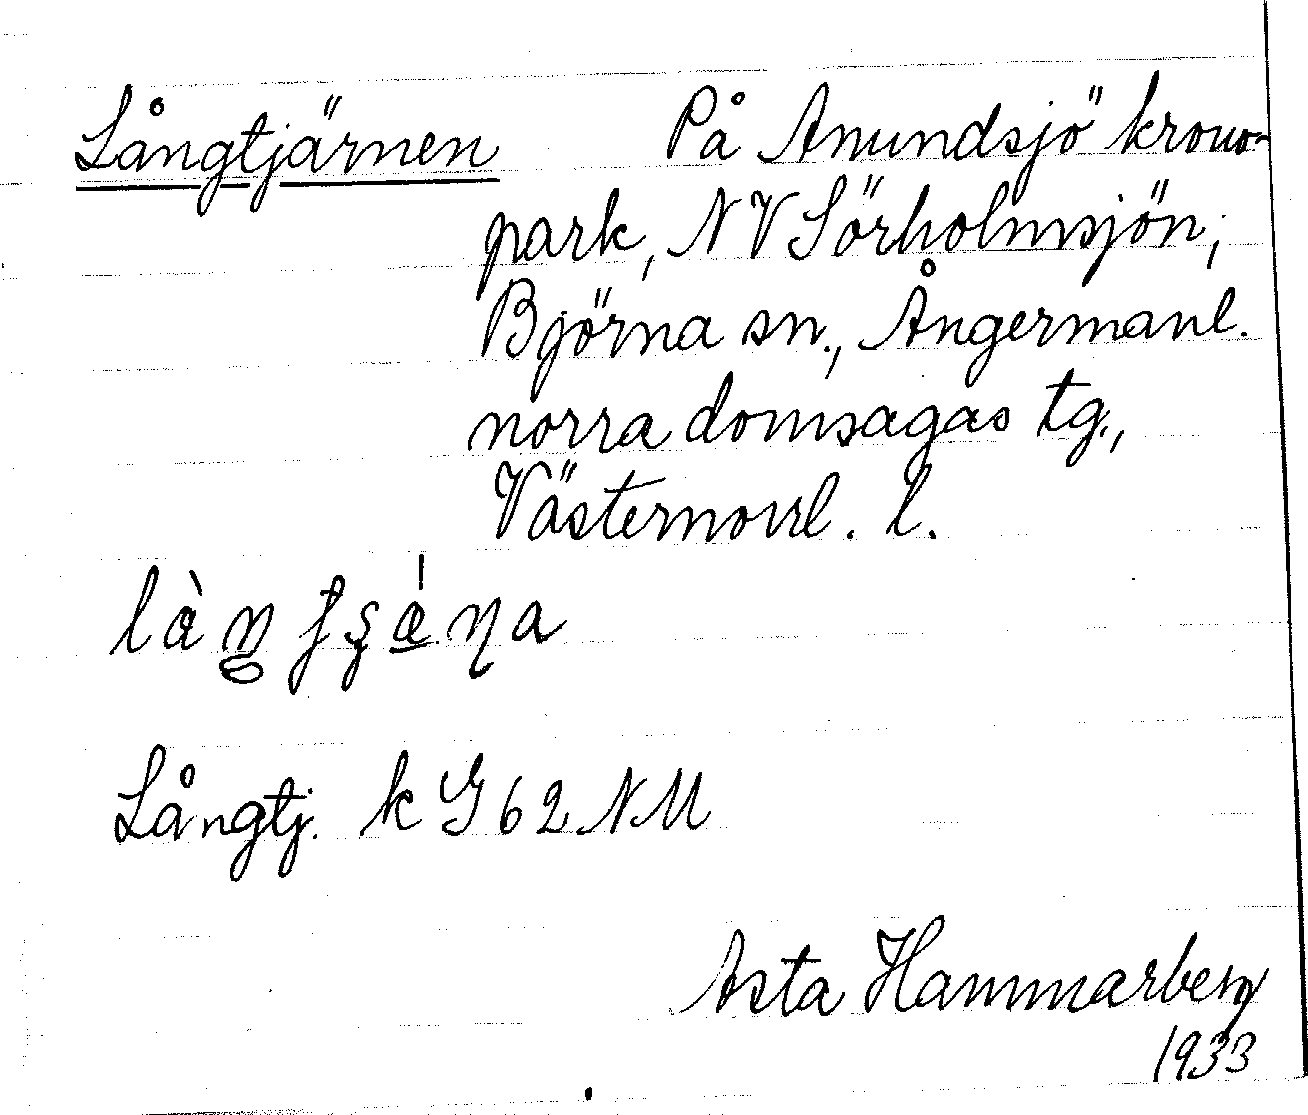 Långtjärnen På Anundsjö krono-
park, NV Sörholmsjön;
Björna sn., Ångermanl.
norra domsagas tg.,
Västernorrl. l.
Långtj. k G 62 NM
Asta Hammarberg
1933